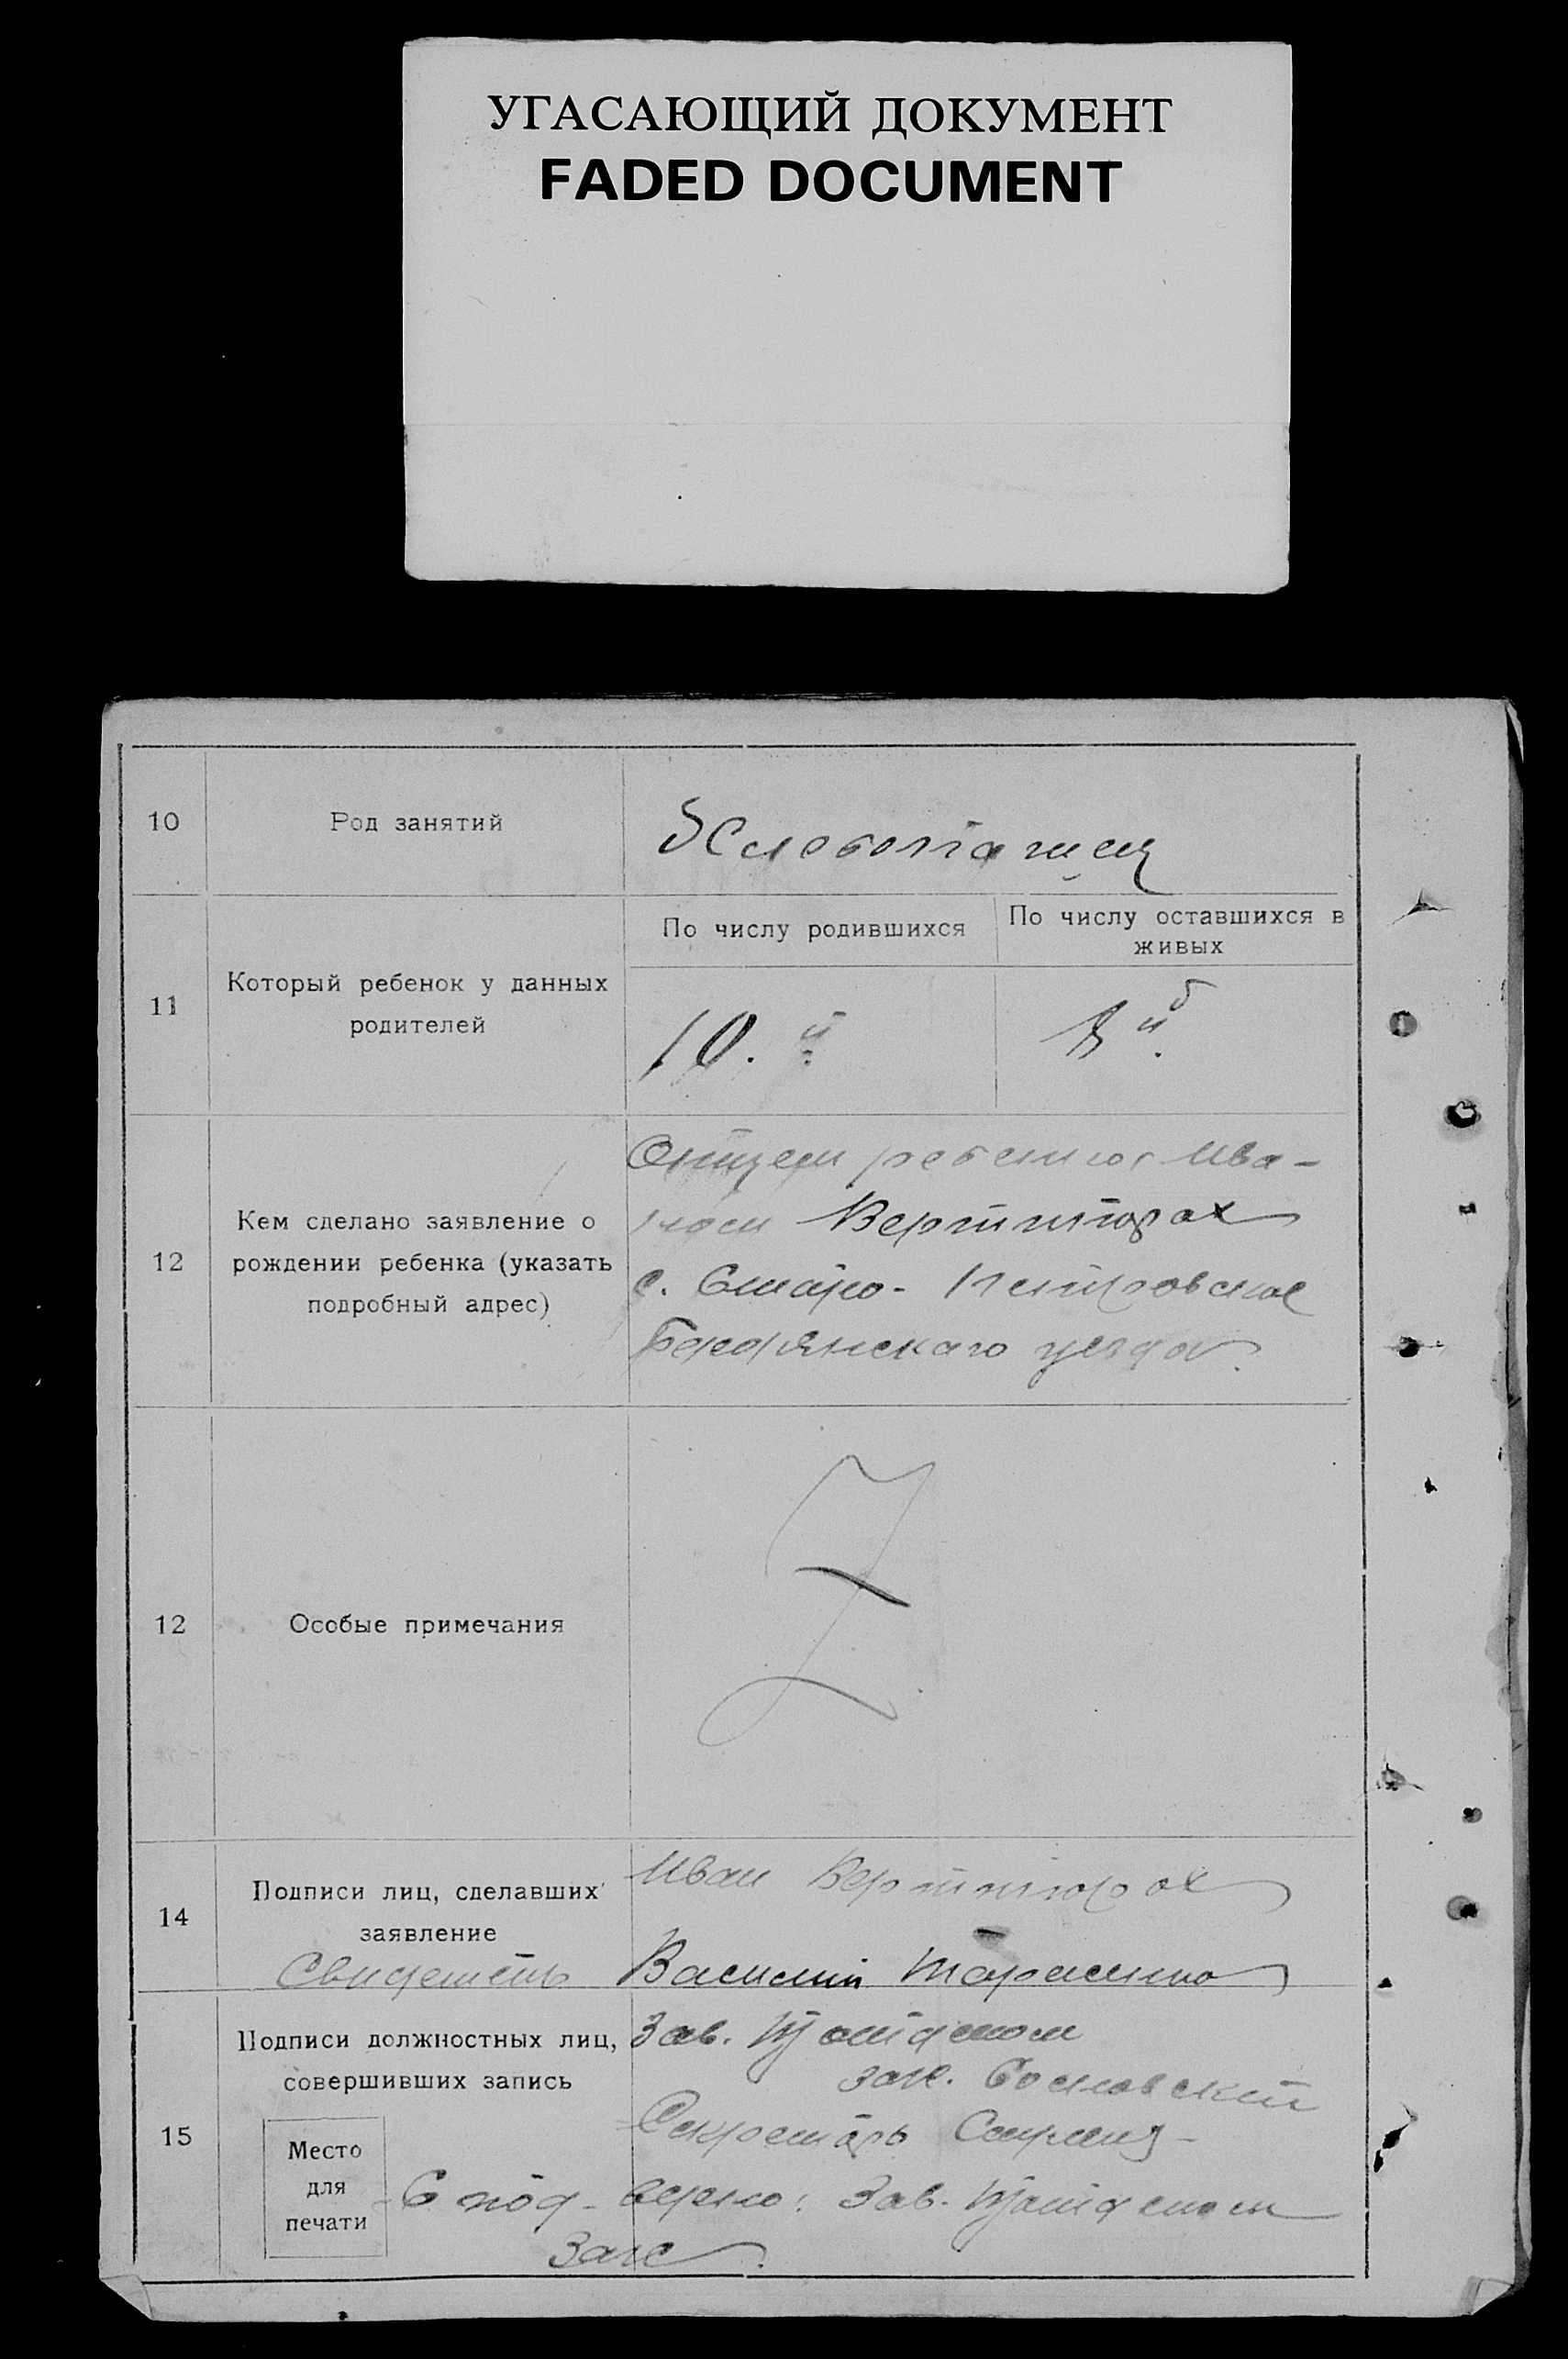 УГАСАЮЩИЙ ДОКУМЕНТ
FADED DOCUMENT
10
Род занятий
Хлебопашец
11
Который ребенок у данных
родителей
По числу родившихся
По числу оставшихся в
живых
10. й
8 й
12
Кем сделано заявление о
рождении ребенка (указать
подробный адрес)
Отцем ребенка Ива-
ном
с. Старо-Петровское
Бердянскаго уезда.
12
Особые примечания
14
Подписи лиц, сделавших
заявление
Иван
Свидетель Василий Тараненко
15
Подписи должностных лиц,
совершивших запись
Место
для
печати
Зав.
Сосновский
Секретарь
Зав.
Загс